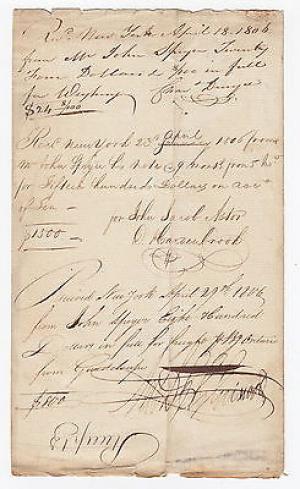 Recd. New York April 18. 1806
from Mr John Speyer Twenty
Four Dollars & 8/100 in full
for Weighing
$24 8/100
Recd New York 23d April 1806 from
Mr John Speyer his note
for Fifteen hundred Dollars on acct
of Tea
$1500 — por John Jacob Astor
Received New York April 29th 1806
from John Speyer Eight Hundred
Dollars in full for freight
from Guadeloupe
$800